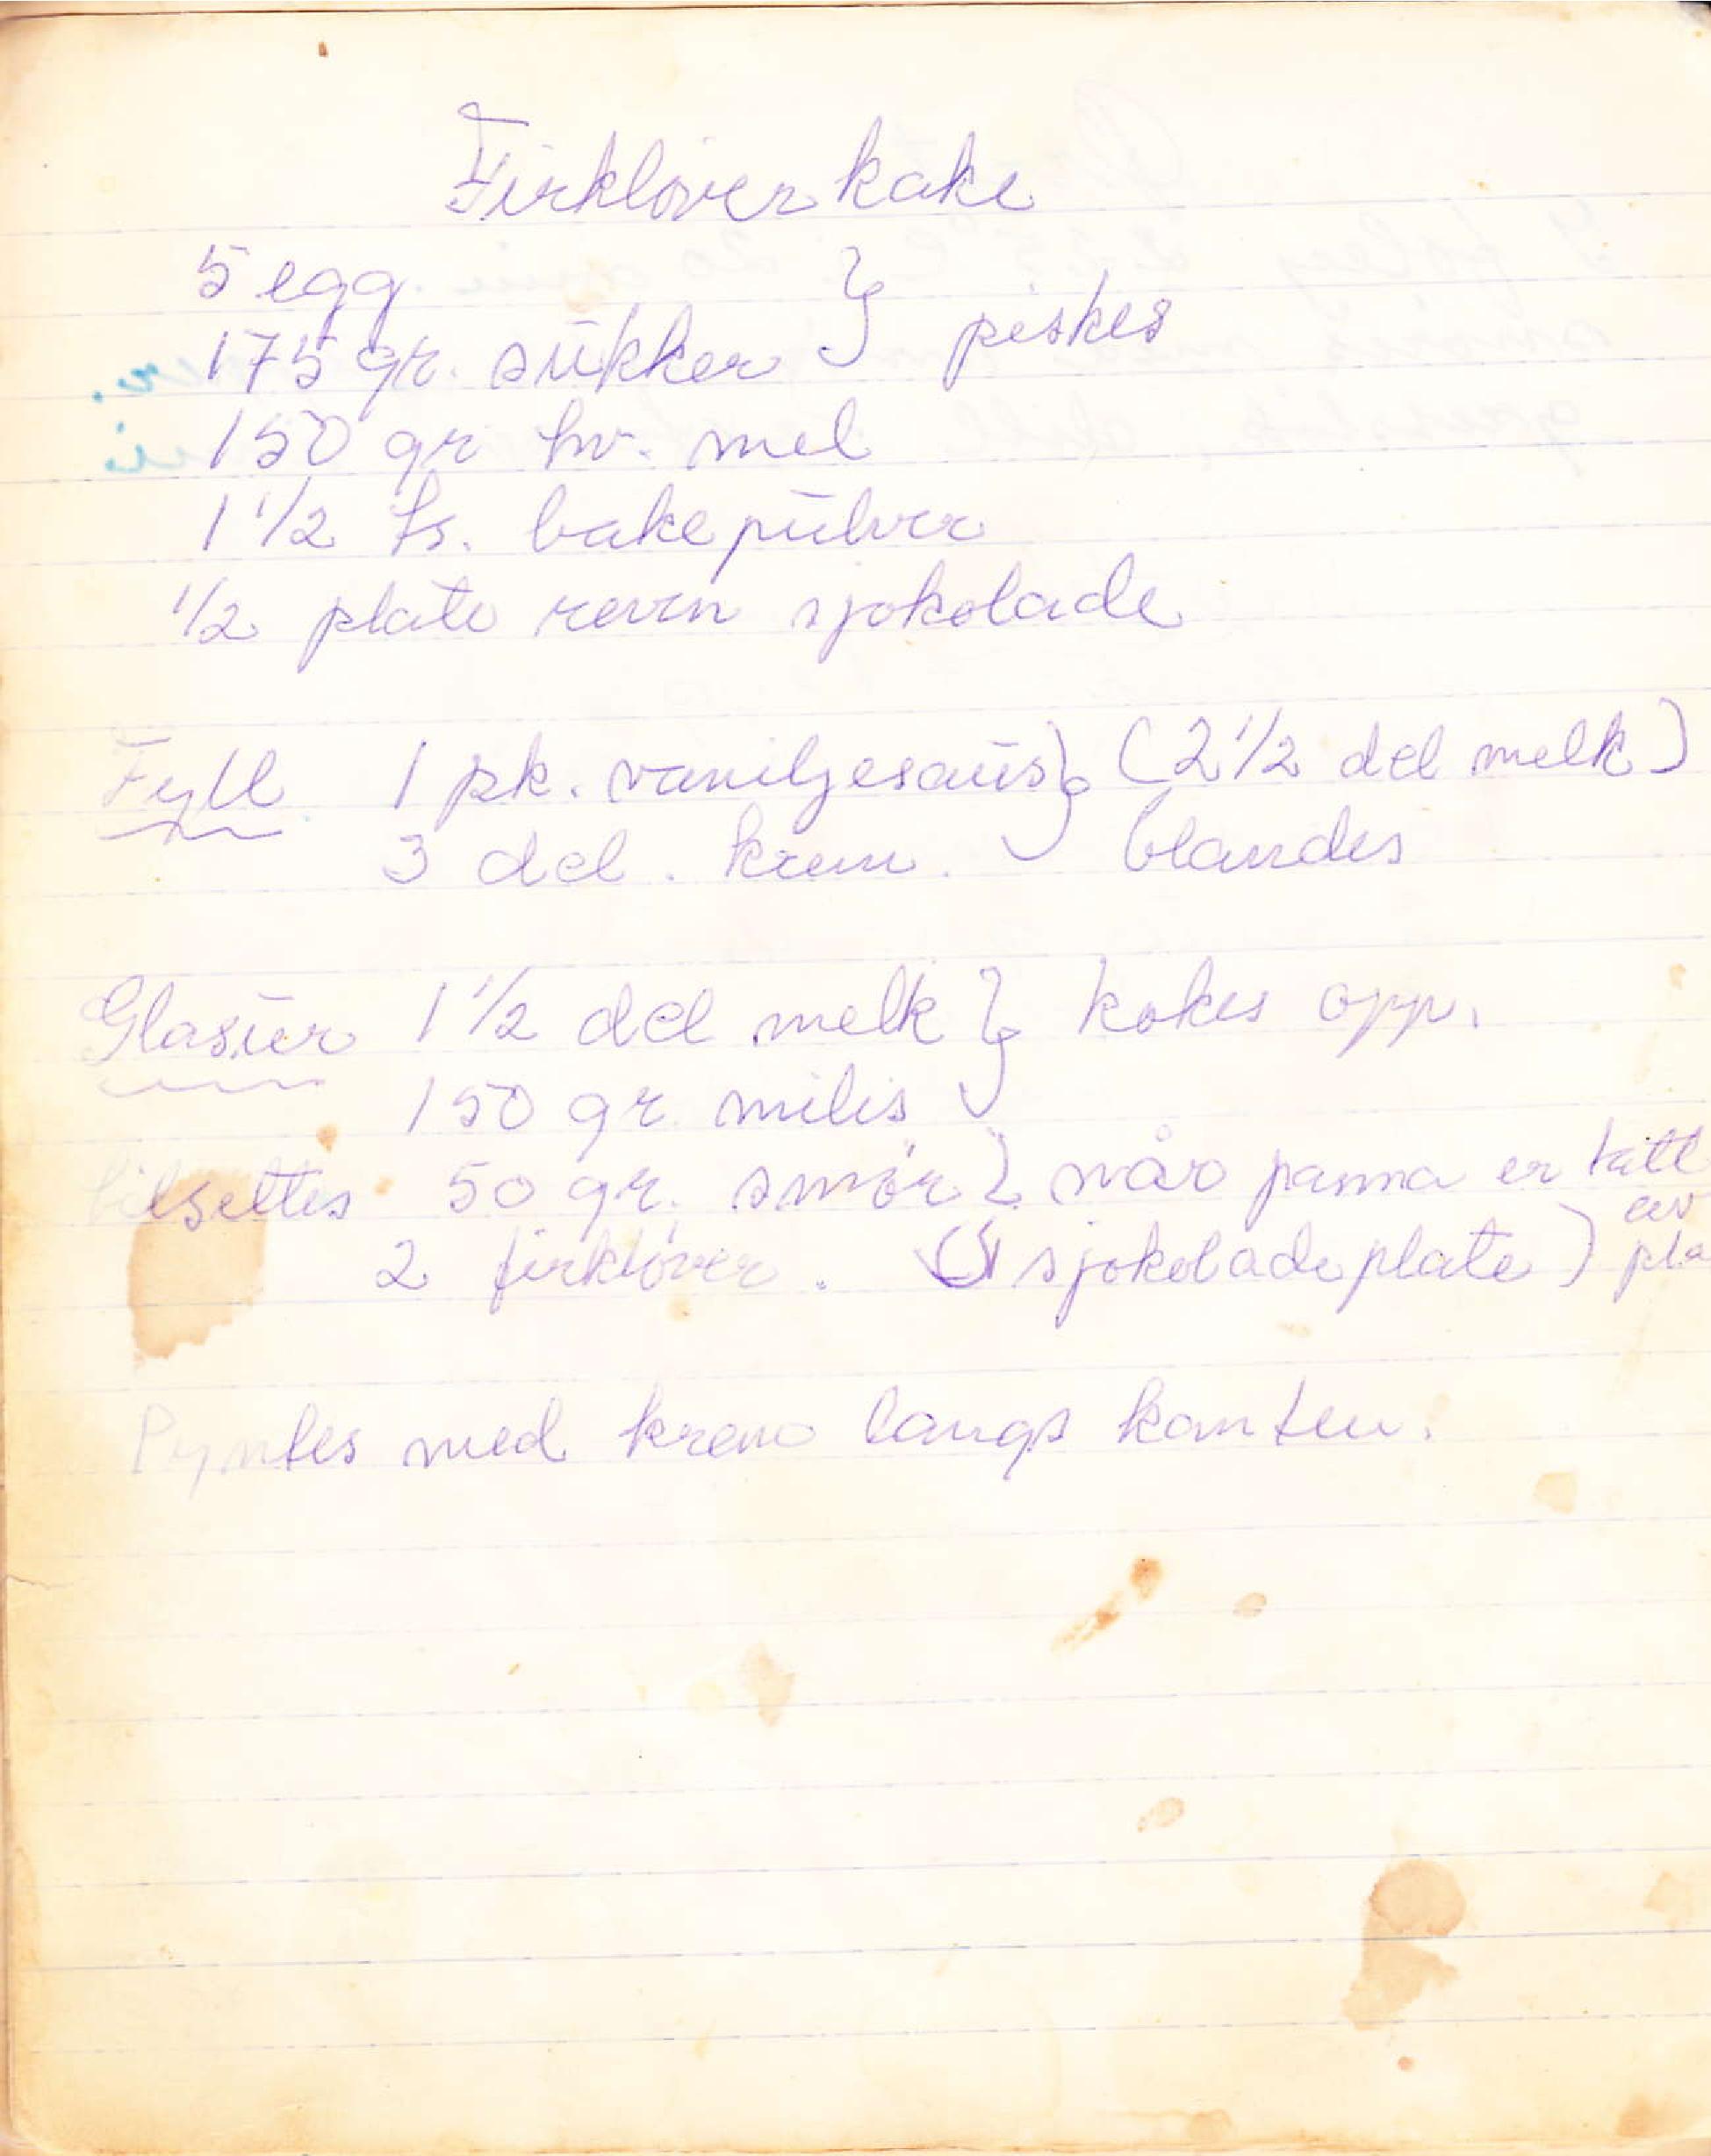 Firkløver kake
5 egg. } piskes
175 gr. sukker
150 gr hv. mel
1 1/2 ts. bakepulver
1/2 plate reven sjokolade
Fyll 1 pk. vaniljesaus } (2 1/2 del melk)
3 del. krem. blandes
Glasur 1 1/2 del melk } kokes opp.
150 gr. milis
tilsettes 50 gr. smør } når panna er tatt
av
2 firkløver. (sjokoladeplate) pla
Pyntes med krem langs kanten.